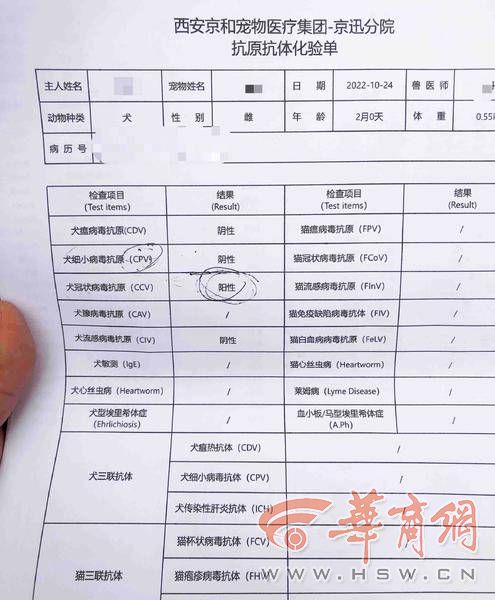 西安京和宠物医疗集团-京迅分院
抗原抗体化验单
主人姓名 宠物姓名 日 期 2022-10-24 兽 医 师
动物种类 犬 性 别 雌 年 龄 2月0天 体 重 0.55
病 历 号
检查项目 结果 检查项目 结果
(Test items) (Result) (Test items) (Result)
犬瘟病毒抗原(CDV) 阴性 猫瘟病毒抗原 (FPV) /
犬细小病毒抗原 (CPV) 阴性 猫冠状病毒抗原 (FCoV) /
犬冠状病毒抗原 (CCV) 阳性 猫流感病毒抗原 (FInV) /
犬腺病毒抗原 (CAV) / 猫免疫缺陷病毒抗体 (FIV) /
犬流感病毒抗原 (CIV) 阴性 猫白血病病毒抗原 (FeLV) /
犬敏测 (IgE) / 猫心丝虫病 (Heartworm) /
犬心丝虫病 (Heartworm) / 莱姆病 (Lyme Disease) /
犬型埃里希体症 / 血小板/马型埃里希体症 /
(Ehrlichiosis) (A.Ph)
犬三联抗体 犬瘟热抗体 (CDV) /
犬细小病毒抗体 (CPV) /
犬传染性肝炎抗体 (ICH)
猫三联抗体 猫杯状病毒抗体 (FCV)
猫疱疹病毒抗体 (FHV)
華商網
WWW.HSW.CN